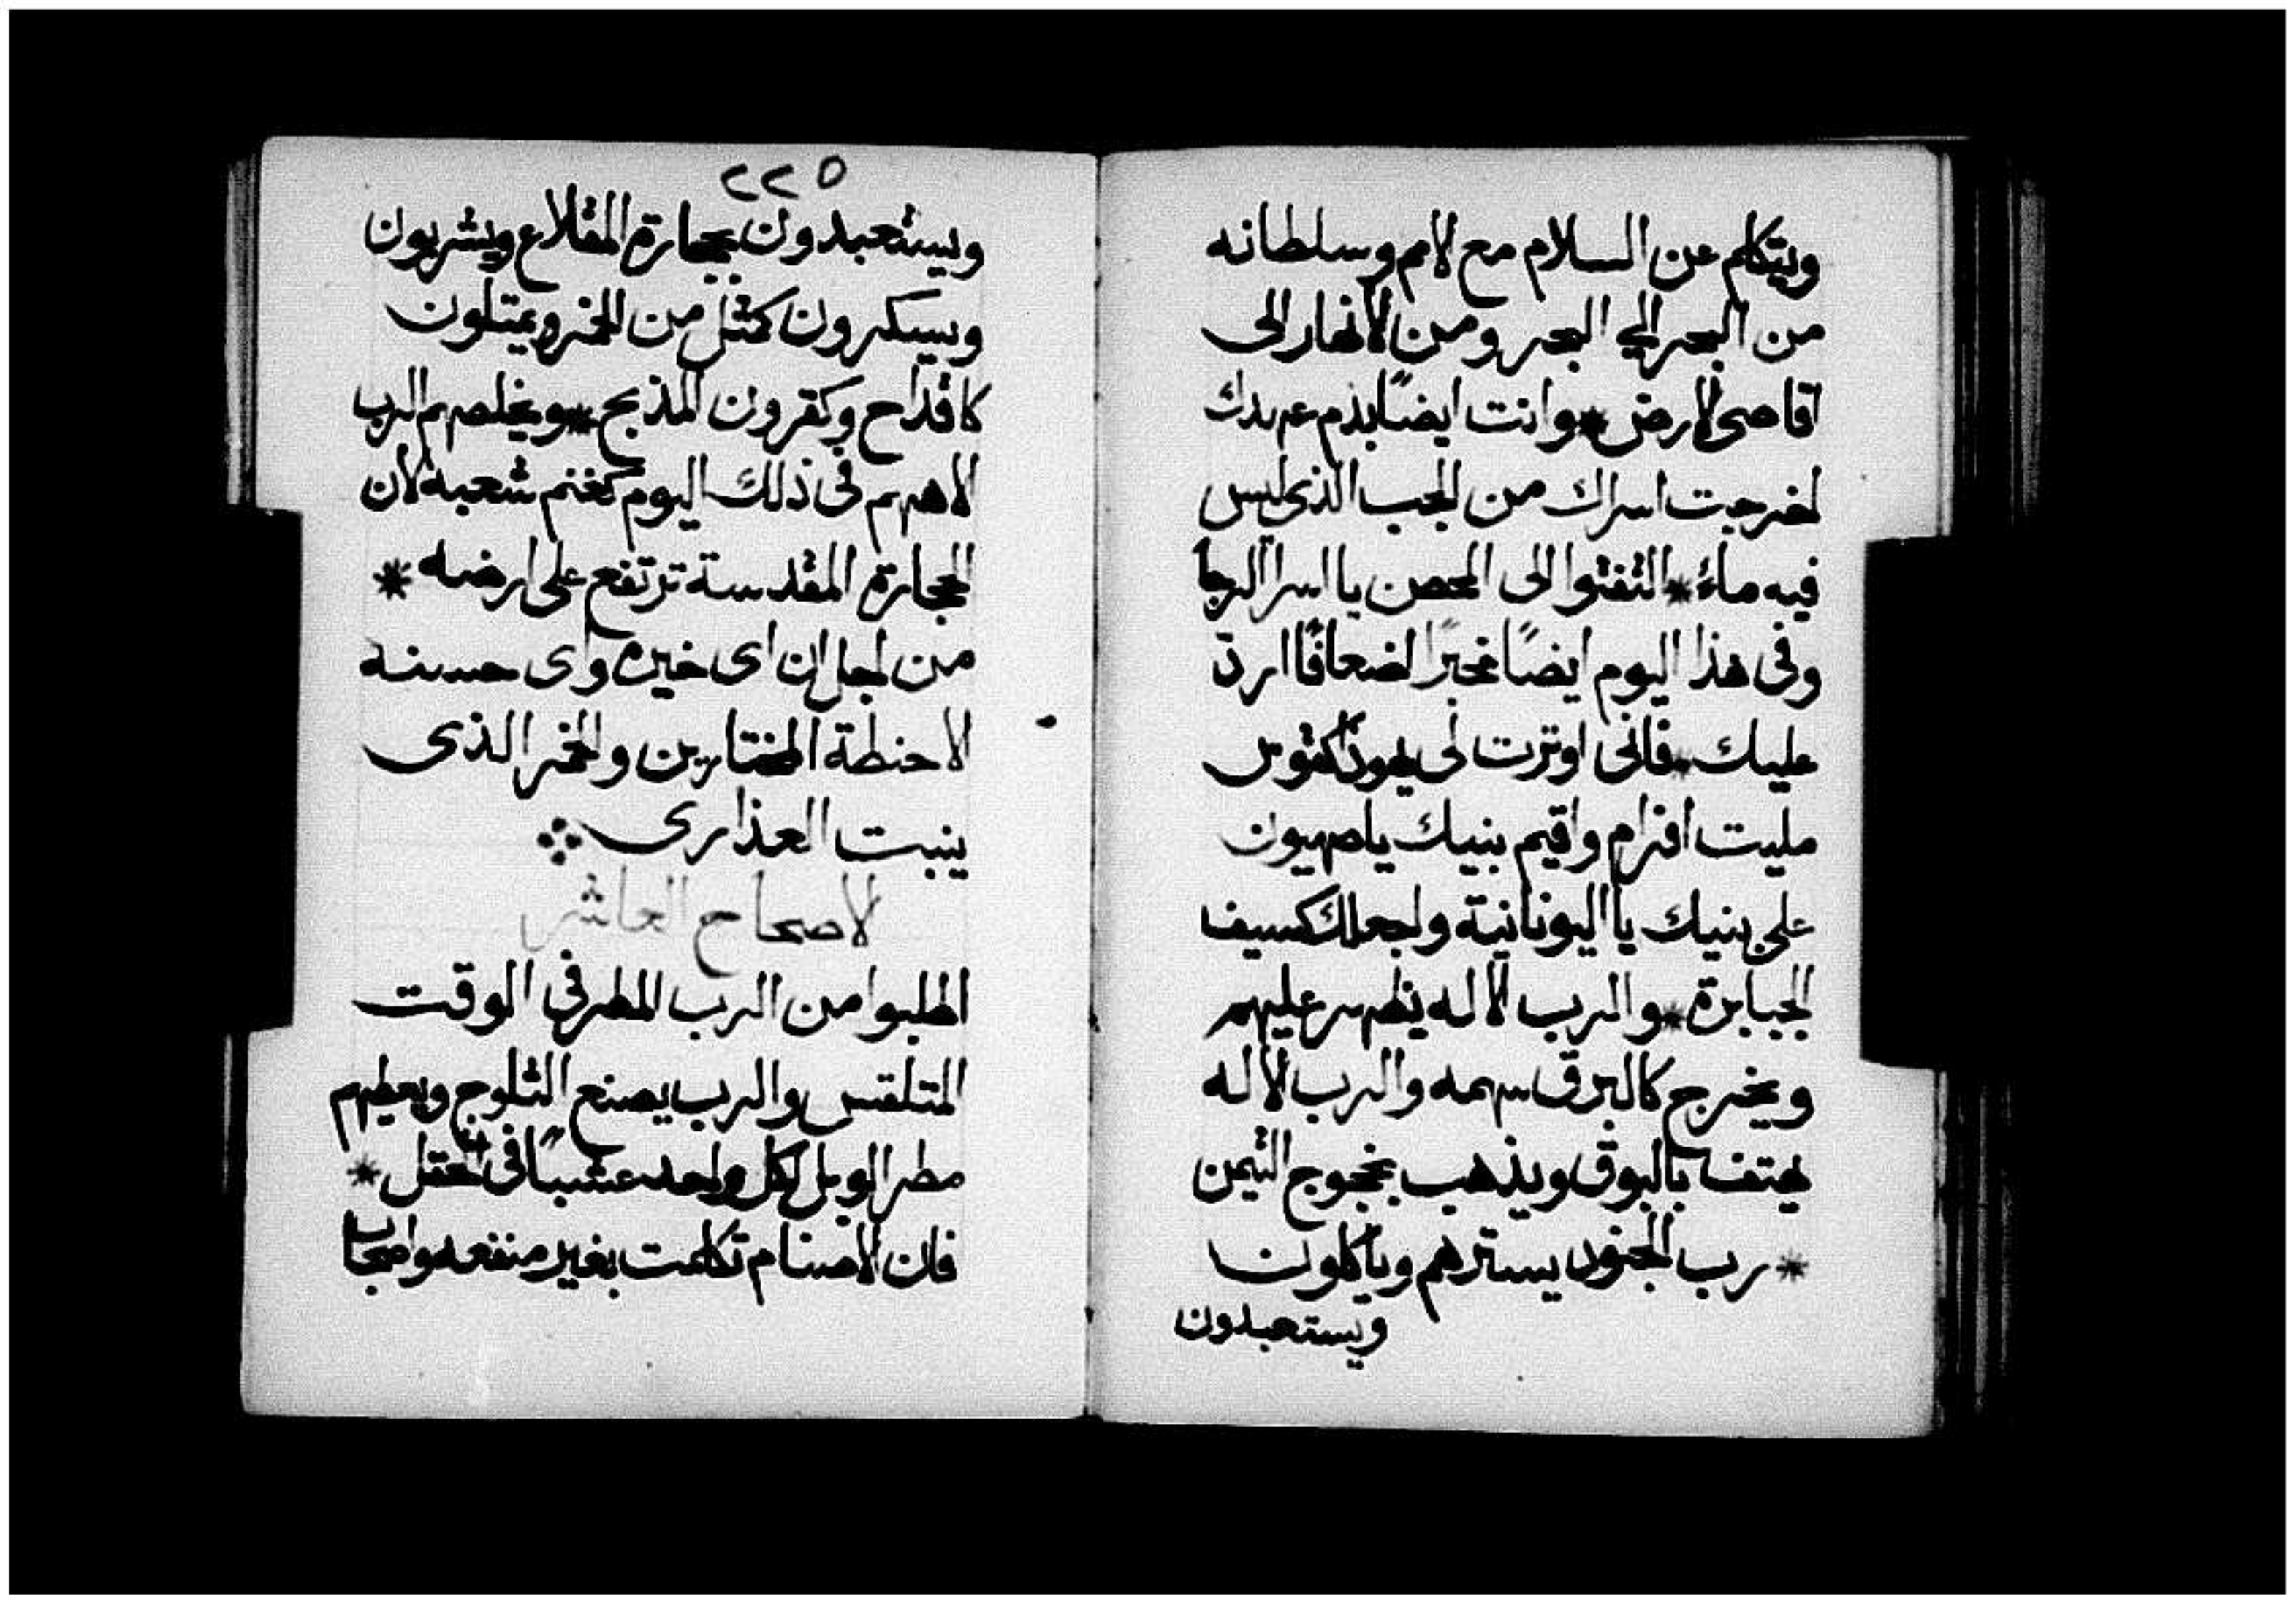 ويتكلم عن السلام مع الامم وسلطانه
من البحر الى البحر ومن الانهار الى
اقاصى الارض * وانت ايضًا بدم عهدك
اخرجت اسراك من الجب الذى ليس
فيه ماء * التفتوا الى الحصن يا اسرا الرجا
وفى هذا اليوم ايضًا مخبرًا اضعافًا ارد
عليك * فانى اوترت لى يهودا كقوس
مليت افرام واقيم بنيك يا صهيون
على بنيك يا اليونانية واجعلك كسيف
الجبابرة * والرب الاله يظهر عليهم
ويخرج كالبرق سهمه والرب الاله
يهتف بالبوق ويذهب التيمن
* رب الجنود يسترهم وياكلون
ويستعبدون
٢٢٥
ويستعبدون بحجارة المقلاع ويشربون
ويسكرون كمثل من الخمر ويمتلون
كاقداح وكقرون المذبح * ويخلصهم الرب
الاههم فى ذلك اليوم كغنم شعبه لان
الحجارة المقدسة ترتفع على ارضه *
من اجل ان اى خيره واى حسنه
الا حنطة المختارين والخمر الذى
ينبت العذارى
الاصحاح العاشر
اطلبوا من الرب المطر فى الوقت
المتلقس والرب يصنع الثلوج ويعطيهم
مطر الوبل لكل واحد عشبًا فى الحقل *
فان الاصنام تكلمت بغير منفعه واصحاب